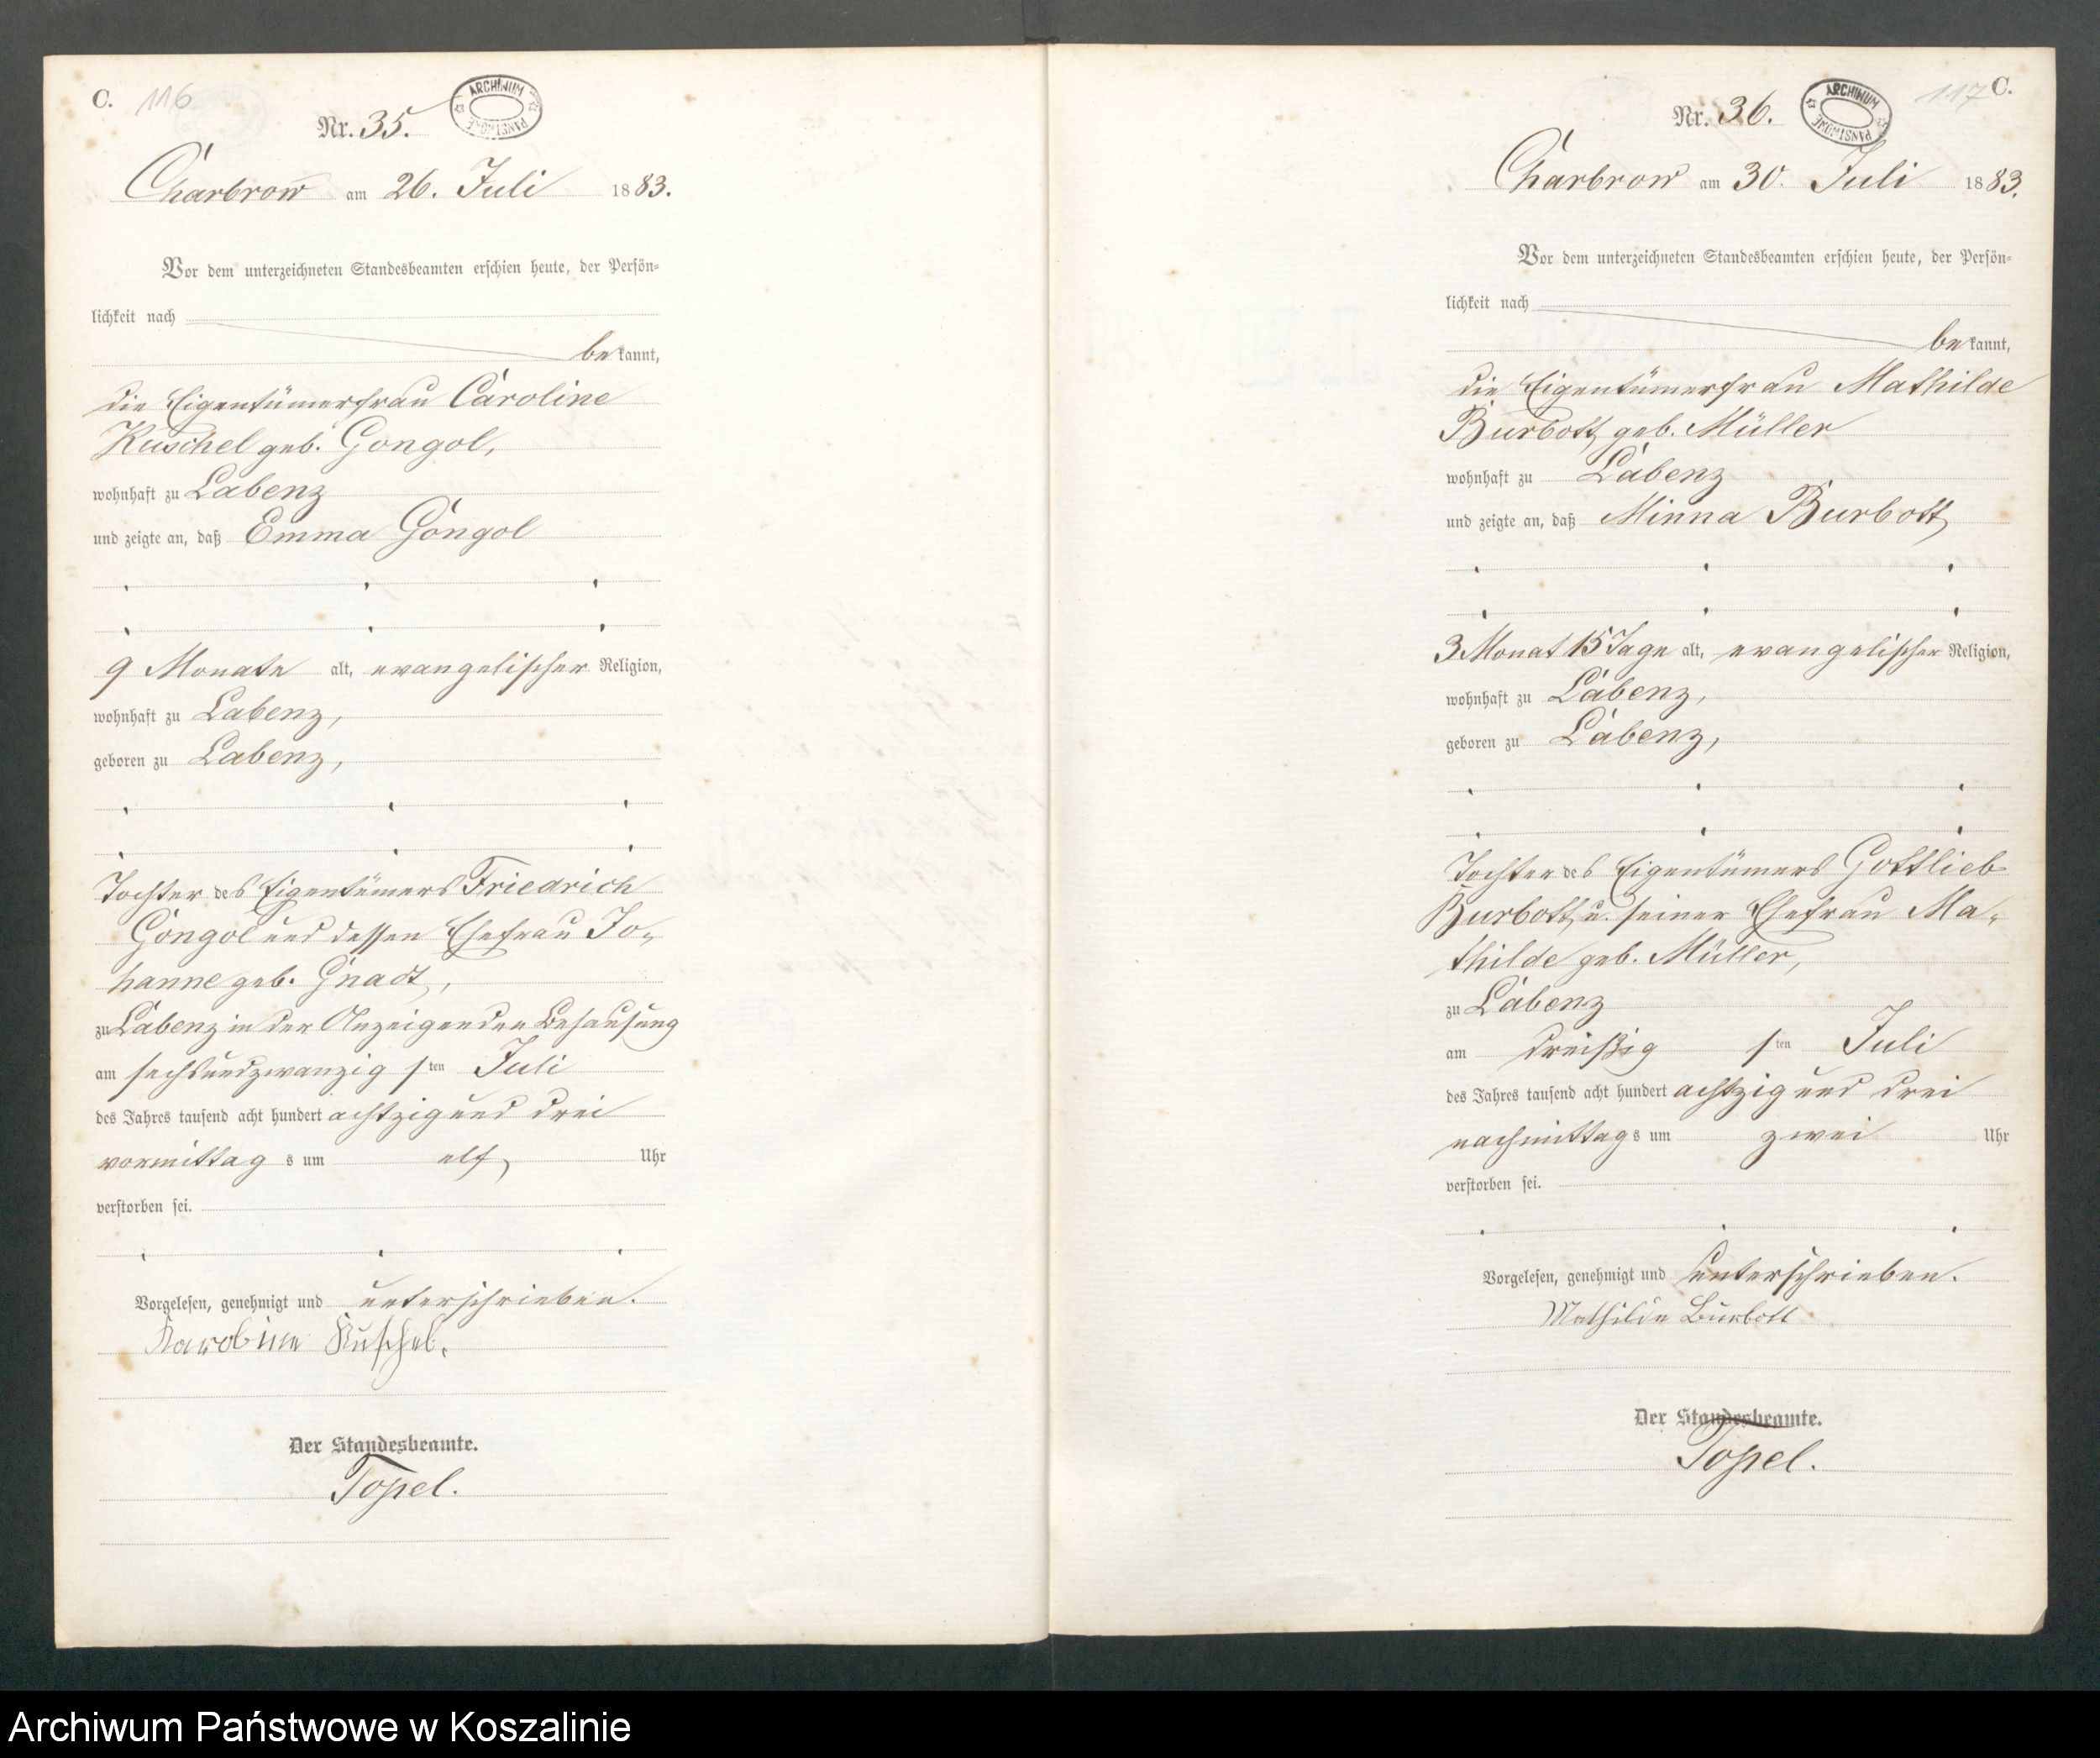 C. 116
ARCHIWUM PAŃSTWOWE
Nr. 35.
Charbrow am 26. Juli 1883.
Vor dem unterzeichneten Standesbeamten erschien heute, der Persön-
lichkeit nach
bekannt,
die Eigentümerfrau Caroline
Kuschel geb. Gongol,
wohnhaft zu Labenz
und zeigte an, daß Emma Gongol
9 Monate alt, evangelischer Religion,
wohnhaft zu Labenz,
geboren zu Labenz,
Tochter des Eigentümers Friedrich
Gongol und dessen Ehefrau Jo-
hanne geb. Gnadt,
zu Labenz in der Anzeigenden Behausung
am sechsundzwanzigsten Juli
des Jahres tausend acht hundert achtzig und drei
vormittags um elf Uhr
verstorben sei.
Vorgelesen, genehmigt und unterschrieben.
Karoline Kuschel.
Der Standesbeamte.
Topel.
117 C.
ARCHIWUM PAŃSTWOWE
Nr. 36.
Charbrow am 30. Juli 1883.
Vor dem unterzeichneten Standesbeamten erschien heute, der Persön-
lichkeit nach
bekannt,
die Eigentümerfrau Mathilde
Burbott geb. Müller
wohnhaft zu Labenz
und zeigte an, daß Minna Burbott,
3 Monat 15 Tage alt, evangelischer Religion,
wohnhaft zu Labenz,
geboren zu Labenz,
Tochter des Eigentümers Gottlieb
Burbott u. seiner Ehefrau Ma-
thilde geb. Müller,
zu Labenz
am dreißigsten Juli
des Jahres tausend acht hundert achtzig und drei
nachmittags um zwei Uhr
verstorben sei.
Vorgelesen, genehmigt und unterschrieben.
Mathilde Burbott
Der Standesbeamte.
Topel.
Archiwum Państwowe w Koszalinie